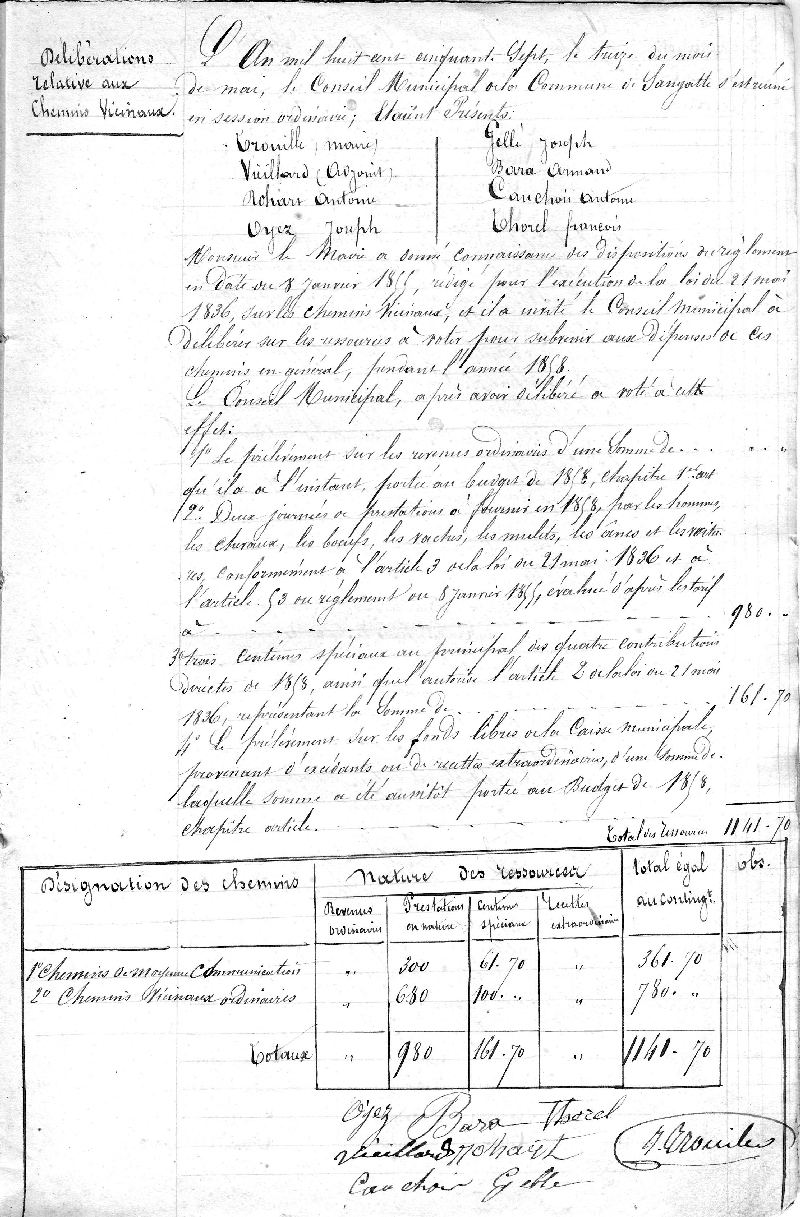 Délibérations
relative aux
Chemins Vicinaux.
L'An mil huit cent cinquante Sept, le treize du mois
de mai, le Conseil Municipal de la Commune de Sangatte s'est réuni
en session ordinaire; Etaient Présents:
Trouille (maire)
Vieillard (Adjoint)
Rohart Antoine
Oyez Joseph
Gellé Joseph
Bara Armand
Cauchois Antoine
Thorel françois
Monsieur le Maire a donné connaissance des dispositions du réglement
en date du 8 Janvier 1855, rédigé pour l'exécution de la loi du 21 mai
1836, sur les chemins Vicinaux, et il a invité le Conseil municipal à
délibérer sur les ressources à voter pour subvenir aux dépenses de ces
chemins en général, pendant l'année 1858.
Le Conseil Municipal, après avoir délibéré a voté à cet
effet:
1º Le prélèvement sur les revenus ordinaires d'une Somme de . . . . . "
qu'il a à l'instant, portée au budget de 1858, chapitre 1er art
2º. Deux journées de prestations à fournir en 1858, par les hommes,
les chevaux, les boeufs, les vaches, les mulets, les ânes et les voitu-
res, conformément à l'article 3 de la loi du 21 mai 1836 et à
l'article 53 du réglement du 8 Janvier 1855, évalué d'après le tarif
à - - - - - - - - - - 980. "
3º trois centimes spéciaux au principal des quatre contributions
directes de 1858, ainsi que l'autorise l'article 2 de la loi du 21 mai
1836, représentant la Somme de - - - - - 161-70
4º Le prélèvement sur les fonds libres de la Caisse municipale,
provenant d'excédants ou de recettes extraordinaires, d'une Somme de.
laquelle somme a été aussitôt portée au Budget de 1858,
chapitre article. - - - - -
Total des ressources 1141-70
Désignation des chemins
Nature des ressources
Total égal
au conting.t
Obs.
Revenus
ordinaires
Prestations
en nature
Centimes
spéciaux
Recettes
extraordinaires
1º Chemins de moyenne Communication " 300 61.70 " 361.70
2º Chemins Vicinaux ordinaires " 680 100. " " 780. "
Totaux " 980 161-70 " 1141-70
Oyez Bara Thorel
Vieillard Rohart A. Trouille
Cauchois Gellé